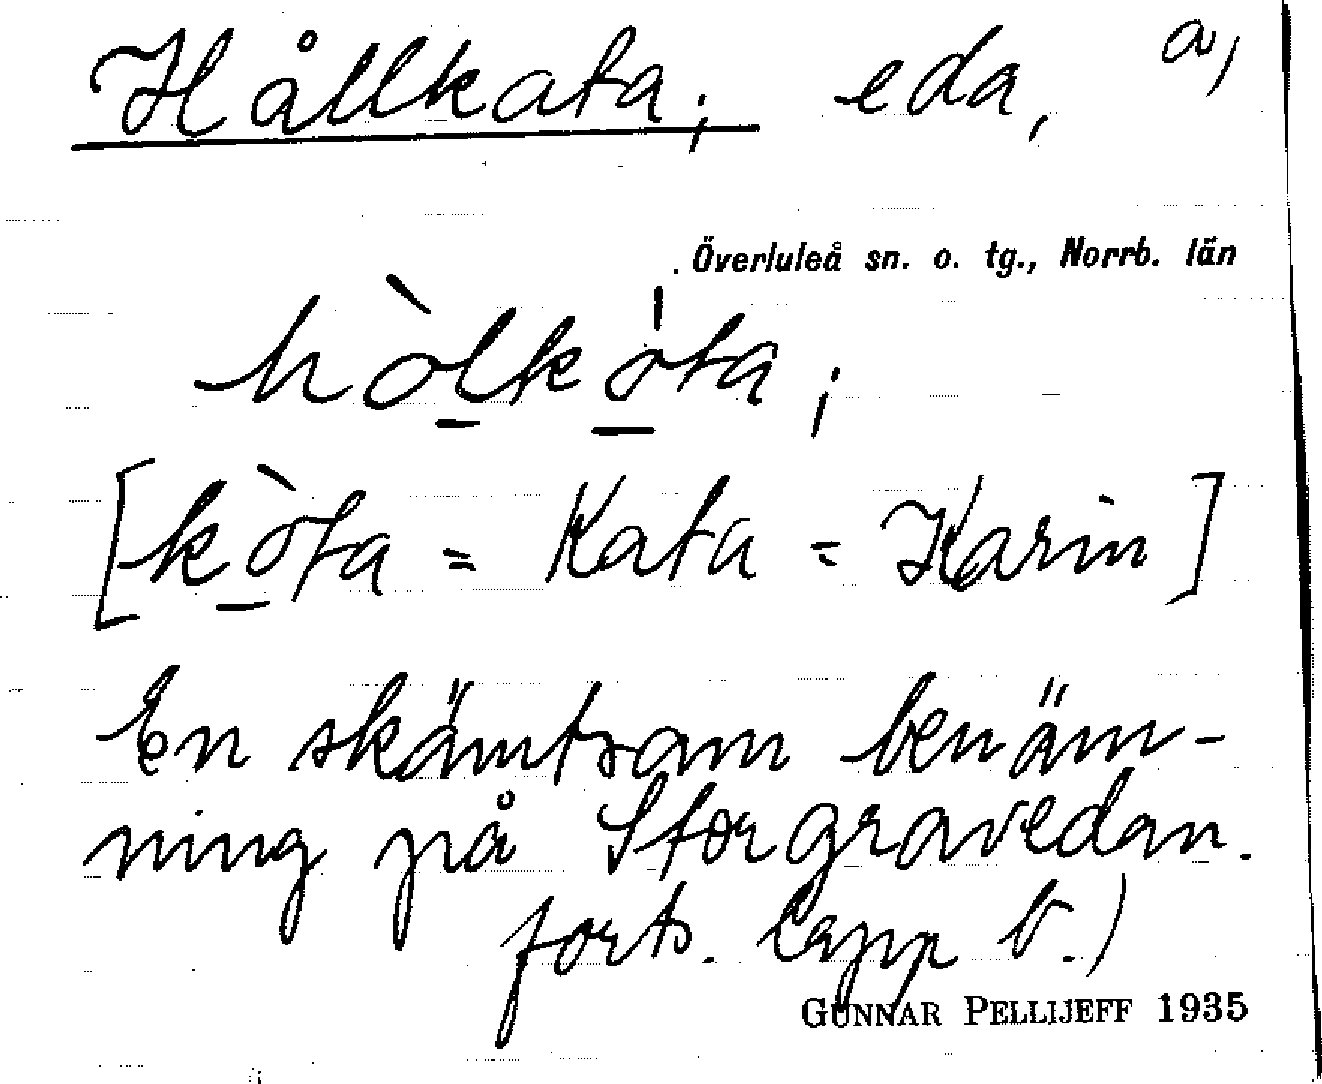 Hållkata; eda, a)
Överluleå sn. o. tg., Norrb. län
hòlkȯta;
[kòta = Kata = Karin]
En skämtsam benäm-
ning på Storgravedan.
forts. lapp b.)
GUNNAR PELLIJEFF 1935